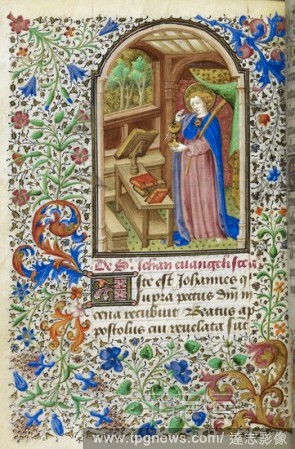 De S. Jehan euangeliste.
Iste est Johannes q̕
supra pectus dñi in
cena recubuit Beatus ap
postolus cui reuelata sūt
www.tpgnews.com/ 達志影像